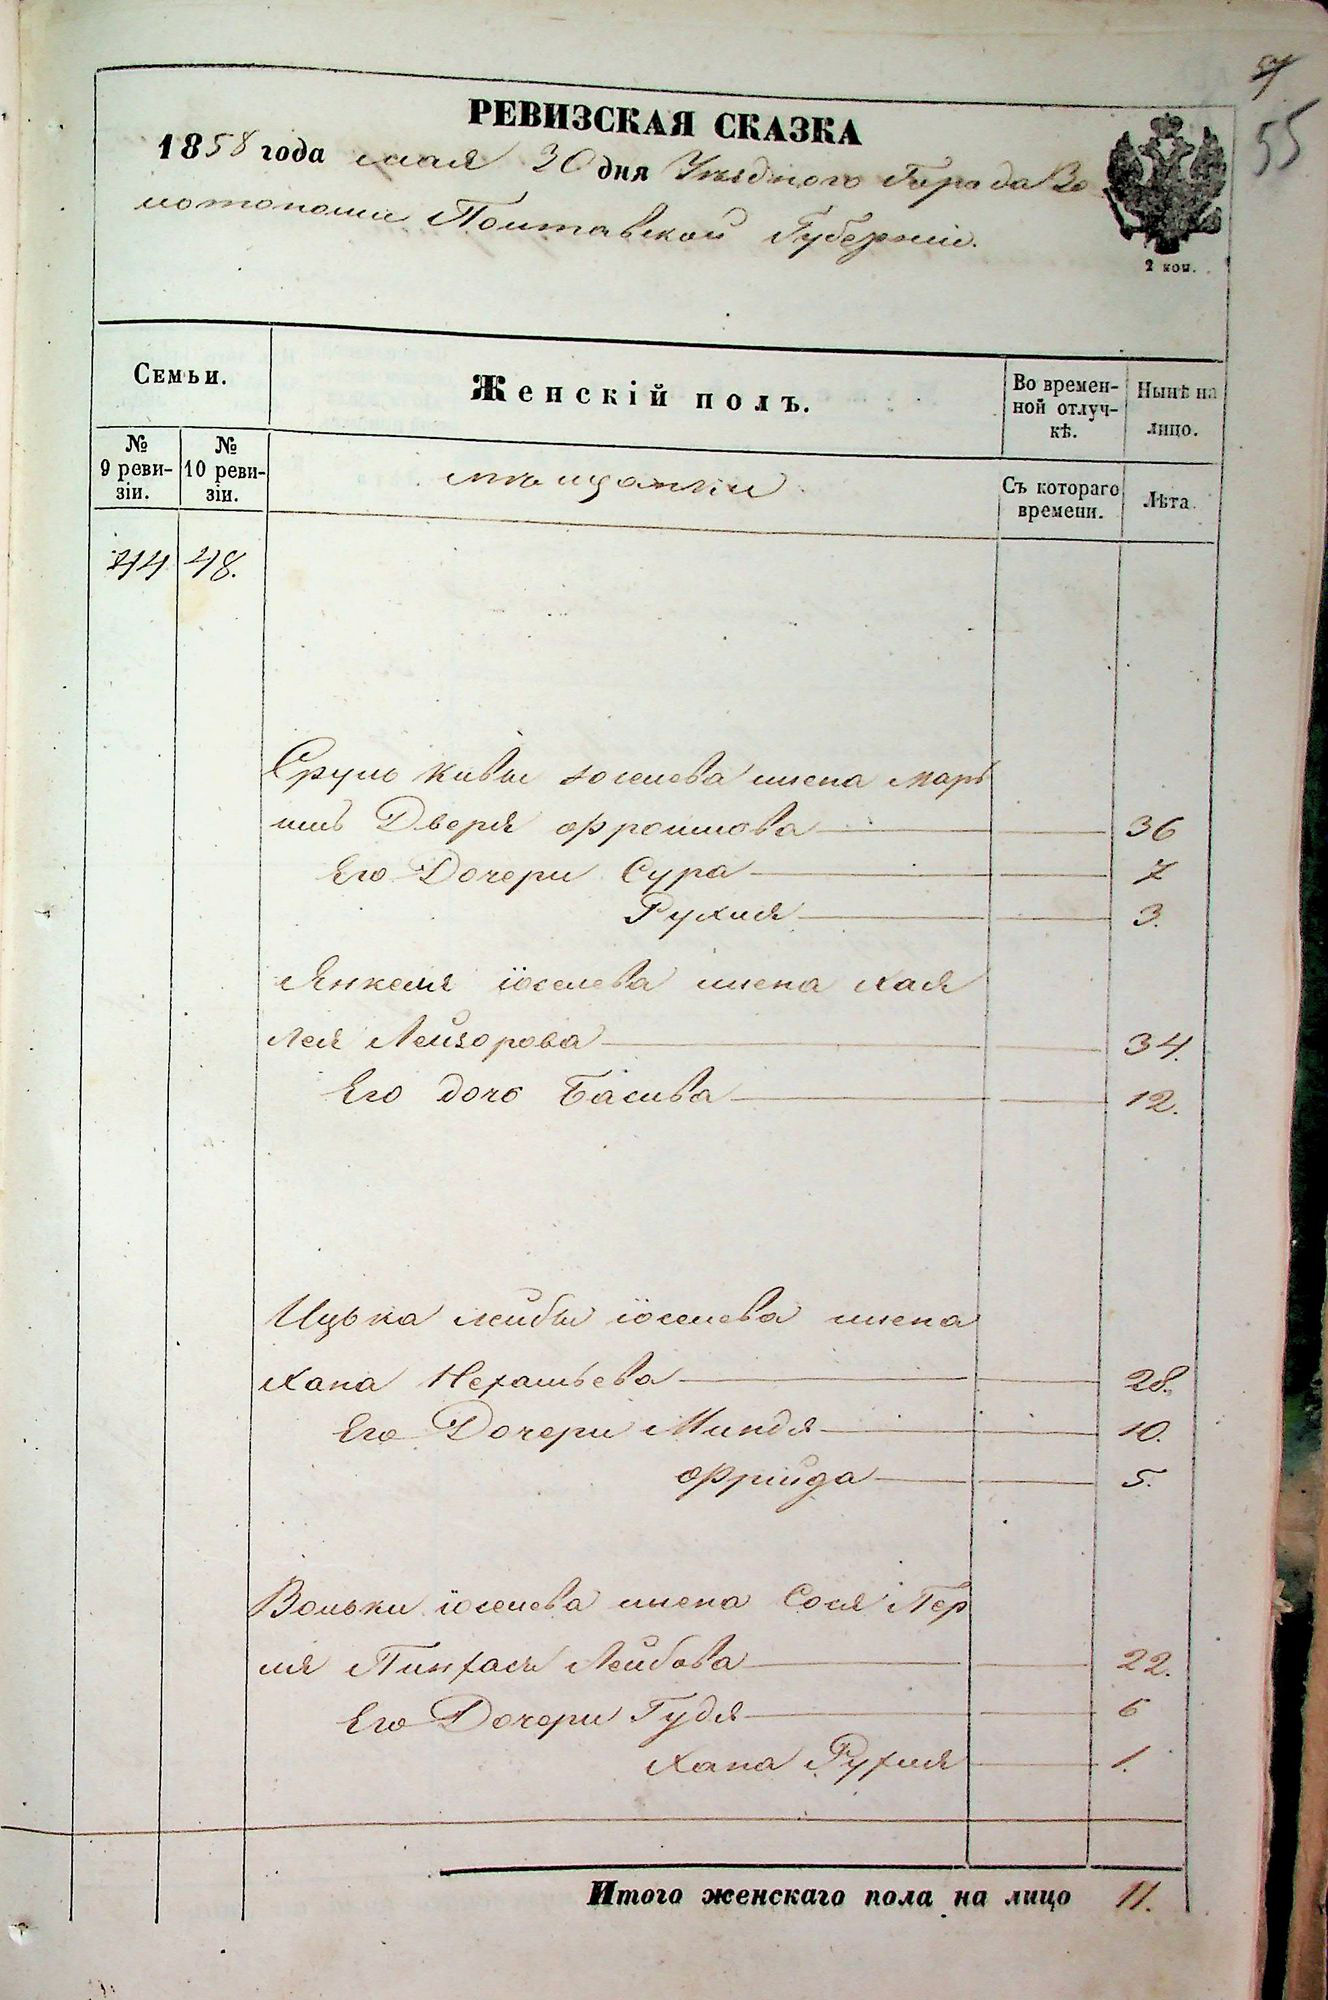 57
55
РЕВИЗСКАЯ СКАЗКА
1858 года мая 30 дня Уѣзднаго Города Зо
лотоноши Полтавской Губерніи.
2 коп.
Семьи.
Женскій полъ.
Во времен-
ной отлуч-
кѣ.
Нынѣ на
лицо.
№
9 реви-
зіи.
№
10 реви-
зіи.
мѣщанки
Съ котораго
времени.
Лѣта.
44 48.
Сруль Кивы Іоселева жена Марь
яш Дверя Фроимова 36
Его Дочери Сура 7
Рухля 3.
Янкеля Іоселева жена Хая
Лея Лейзорова 34.
Его дочь Басшва 12.
Ицька Лейбы Іоселева жена
Хана Нехашьева 28.
Его Дочери Миндя 10.
Фрейда 5.
Вольки Іоселева жена Сося Пер
ля Пинхась Лейбова 22.
Его Дочери Гудя 6
Хана Рухля 1.
Итого женскаго пола на лицо 11.